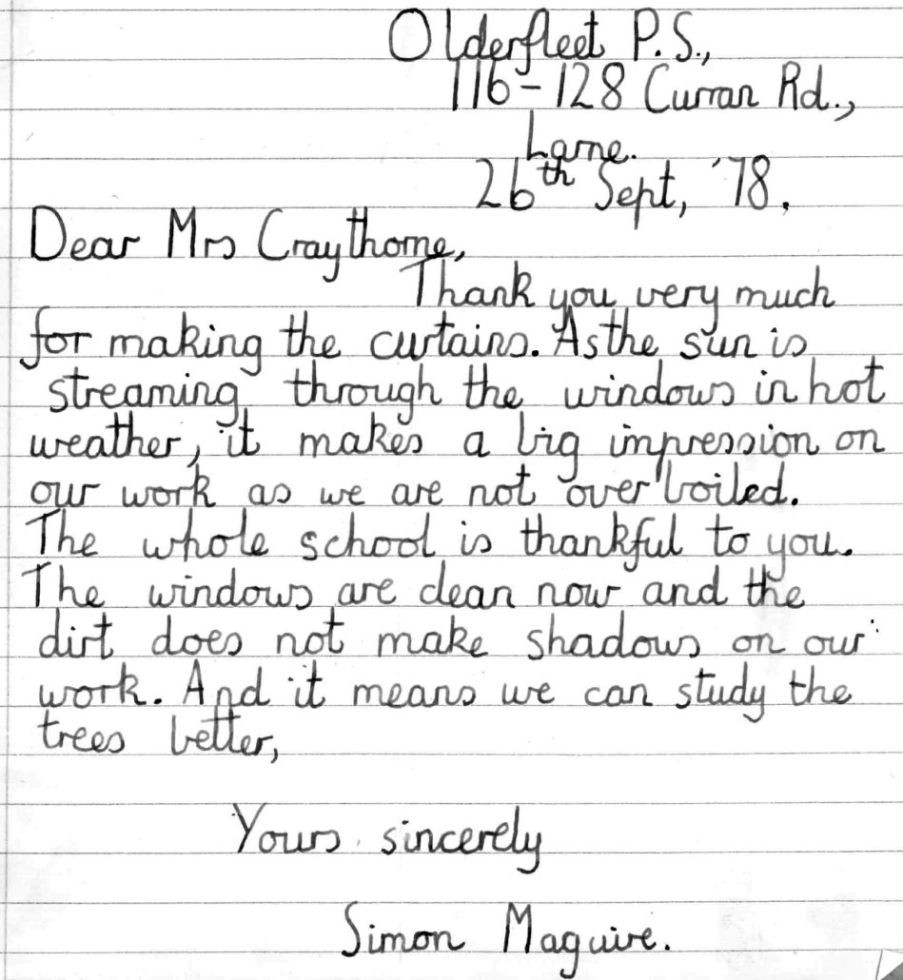 Olderfleet P.S.,
116-128 Curran Rd.,
Larne.
26th Sept, '78.
Dear Mrs Craythorne,
Thank you very much
for making the curtains. As the sun is
streaming through the windows in hot
weather, it makes a big impression on
our work as we are not over boiled.
The whole school is thankful to you.
The windows are clean now and the
dirt does not make shadows on our
work. And it means we can study the
trees better,
Yours sincerely
Simon Maguire.